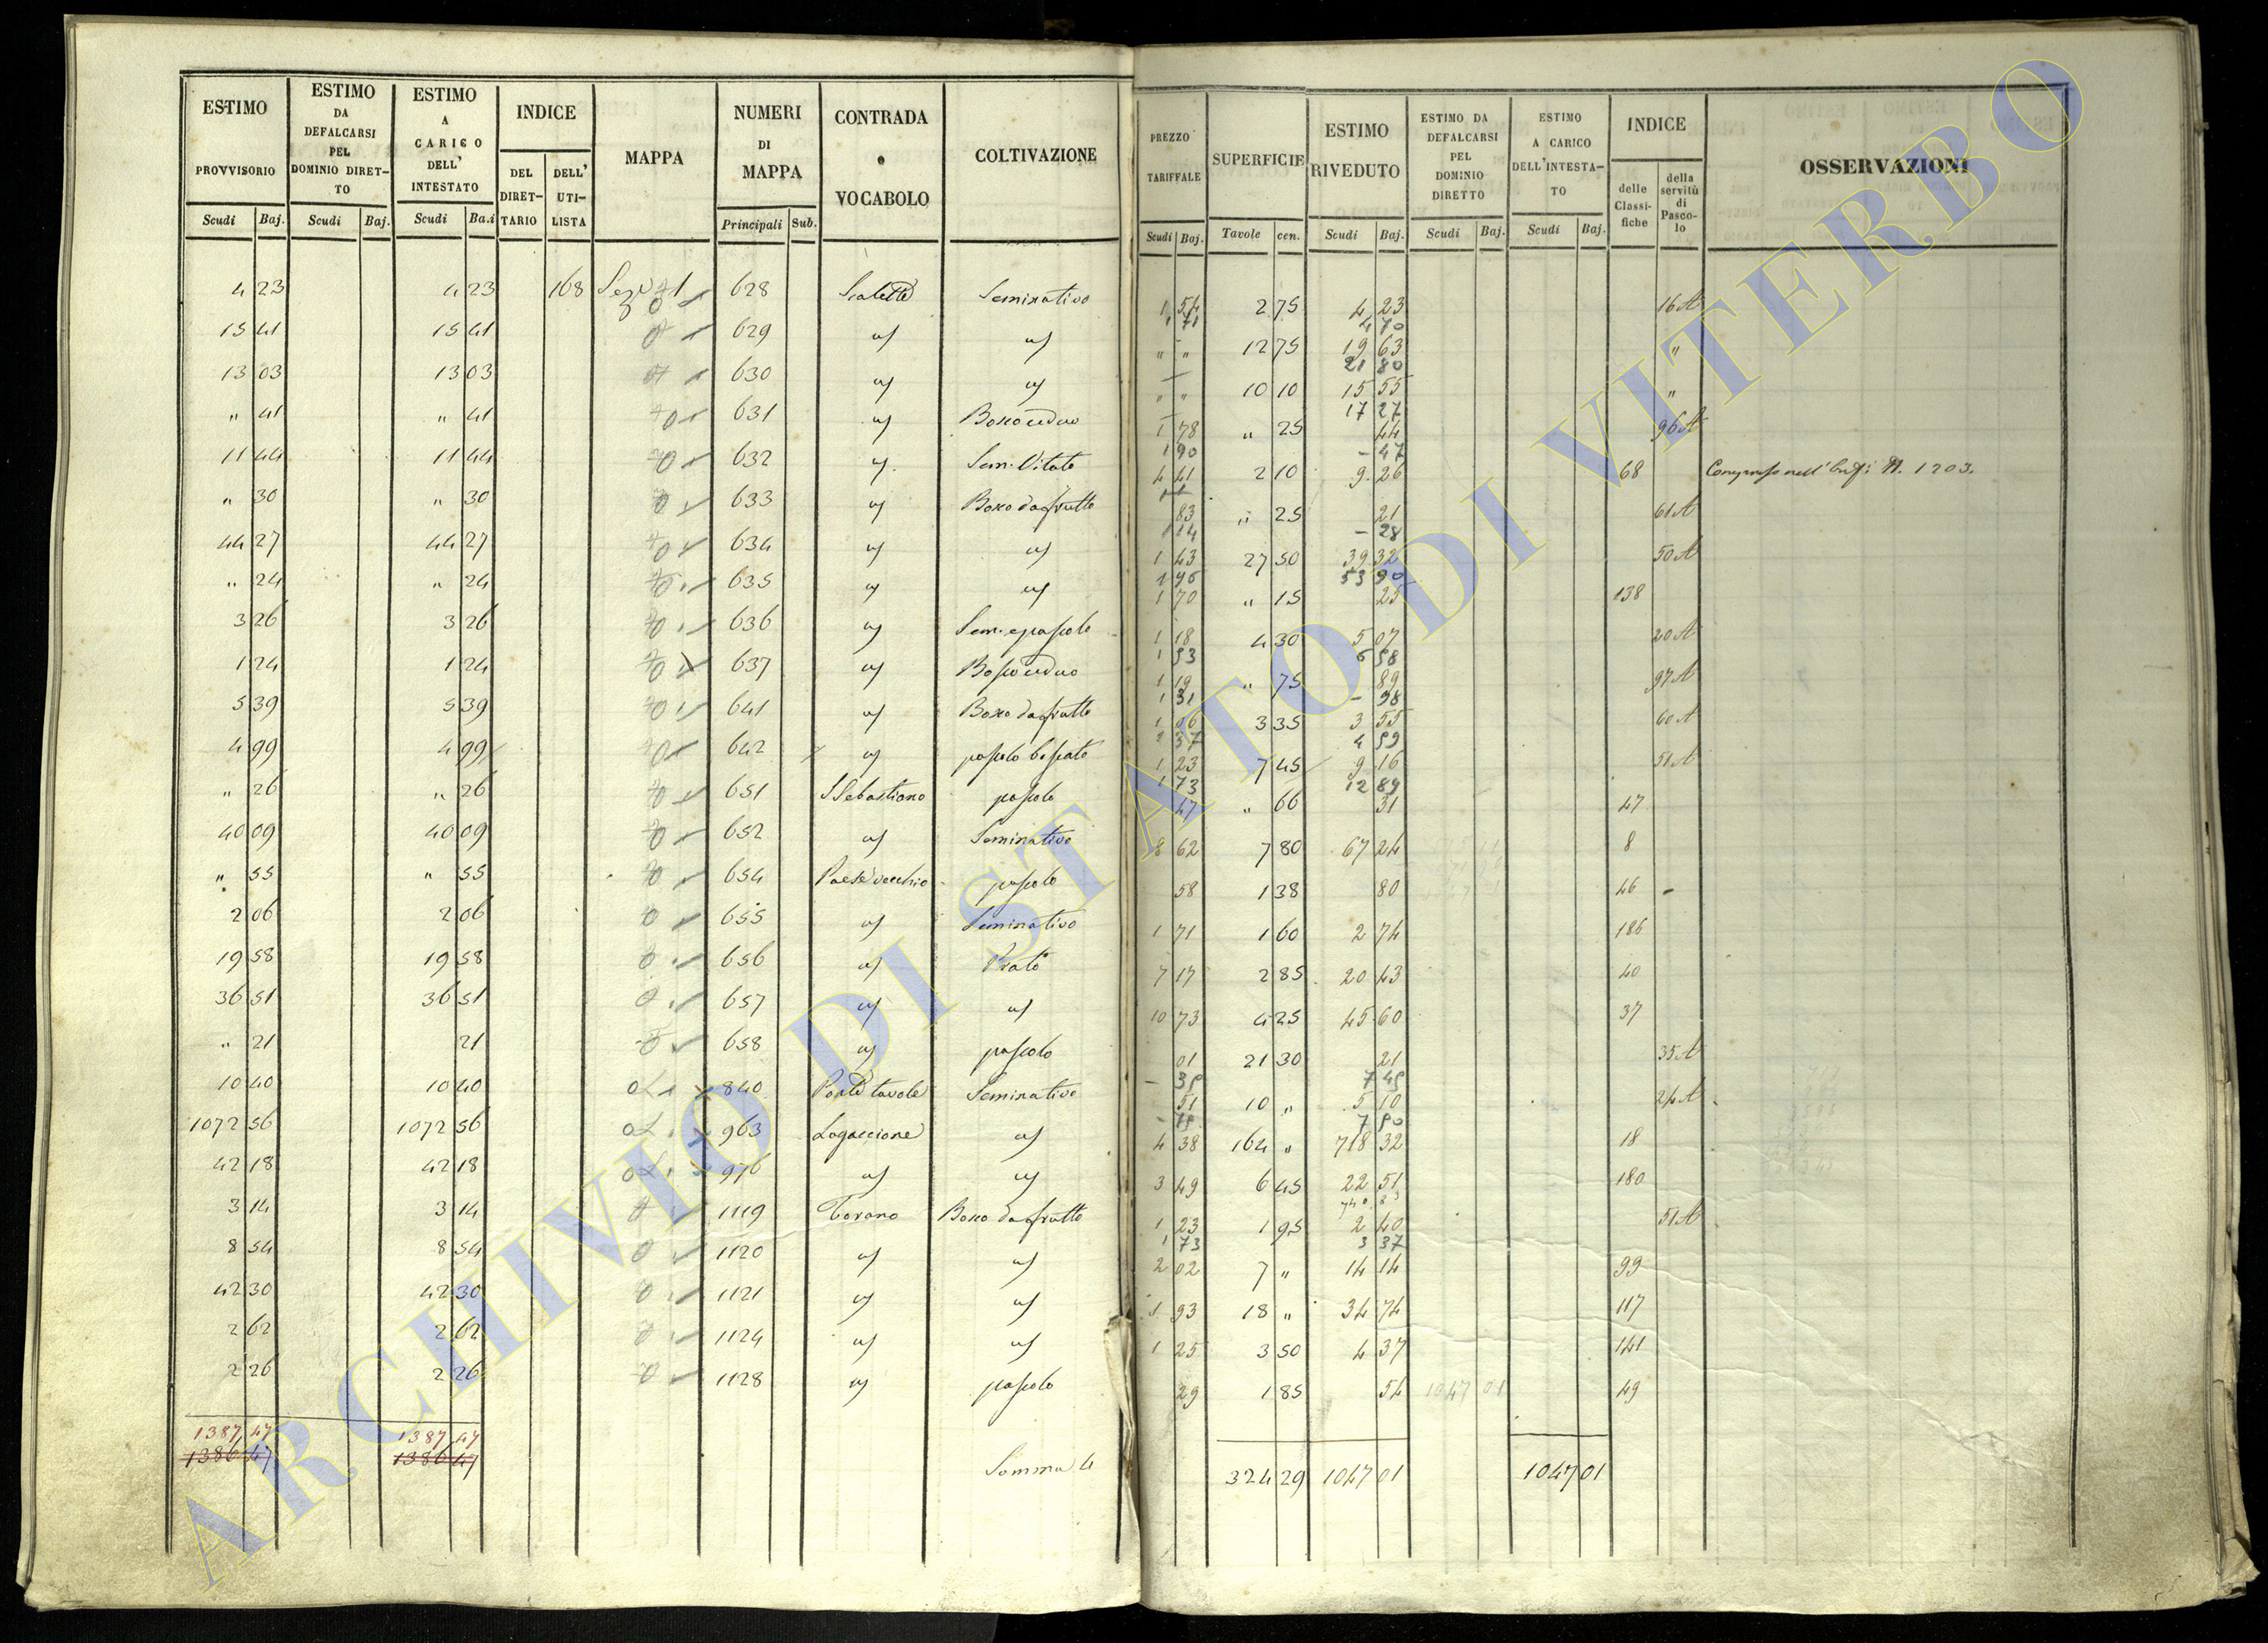 ESTIMO PROVVISORIO Scudi Baj. | ESTIMO DA DEFALCARSI PEL DOMINIO DIRETTO Scudi Baj. | ESTIMO A CARICO DELL' INTESTATO Scudi Ba.i | INDICE DEL DIRETTARIO DELL' UTILISTA | MAPPA | NUMERI DI MAPPA Principali Sub. | CONTRADA o VOCABOLO | COLTIVAZIONE | PREZZO TARIFFALE Scudi Baj. | SUPERFICIE Tavole cen. | ESTIMO RIVEDUTO Scudi Baj. | ESTIMO DA DEFALCARSI PEL DOMINIO DIRETTO Scudi Baj. | ESTIMO A CARICO DELL'INTESTATO Scudi Baj. | INDICE delle Classifiche della servitù di Pascolo | OSSERVAZIONI
4 23 4 23 168 628 Scalette Seminativo 1 54 2 75 4 23 16 A
1 71 4 70
15 41 15 41 629 12 75 19 63 "
21 80
13 03 13 03 630 10 10 15 55 "
17 27
" 41 " 41 631 Bosco ceduo 1 78 " 25 44 96 A
1 90 - 47
11 44 11 44 632 Sem. Vitato 4 41 2 10 9 26 68 N. 1203.
" 30 " 30 633 Bosco da frutto 83 " 25 21 61 A
1 14 - 28
44 27 44 27 634 1 43 27 50 39 32 50 A
1 96 53 90
" 24 " 24 635 1 70 " 15 25 138
3 26 3 26 636 Sem. e pascolo 1 18 4 30 5 07 20 A
1 53 6 58
1 24 1 24 637 Bosco ceduo 1 19 " 75 89 97 A
1 31 - 98
5 39 5 39 641 Bosco da frutto 1 06 3 35 3 55 60 A
1 37 4 59
4 99 4 99 642 pascolo boscato 1 23 7 45 9 16 51 A
1 73 12 89
" 26 " 26 651 S Sebastiano pascolo 47 " 66 31 47
40 09 40 09 652 Seminativo 8 62 7 80 67 24 8
" 55 " 55 654 Paese vecchio pascolo 58 1 38 80 46
2 06 2 06 655 Seminativo 1 71 1 60 2 74 186
19 58 19 58 656 Prato 7 17 2 85 20 43 40
36 51 36 51 657 10 73 4 25 45 60 37
" 21 21 658 pascolo 01 21 30 21 35 A
- 35 7 45
10 40 10 40 840 Ponte tavole Seminativo 51 10 " 5 10 24 A
7 90
1072 56 1072 56 963 Lagaccione 4 38 164 " 718 32 18
42 18 42 18 976 3 49 6 45 22 51 180
3 14 3 14 1119 Torano Bosco da frutto 1 23 1 95 2 40 51 A
1 73 3 37
8 54 8 54 1120 2 02 7 " 14 14 99
42 30 42 30 1121 1 93 18 " 34 74 117
2 62 2 62 1124 1 25 3 50 4 37 141
2 26 2 26 1128 pascolo 29 1 85 54 1047 01 49
1387 47 1387 47
1386 47 1386 47 Somma 4 324 29 1047 01 1047 01
ARCHIVIO DI STATO DI VITERBO